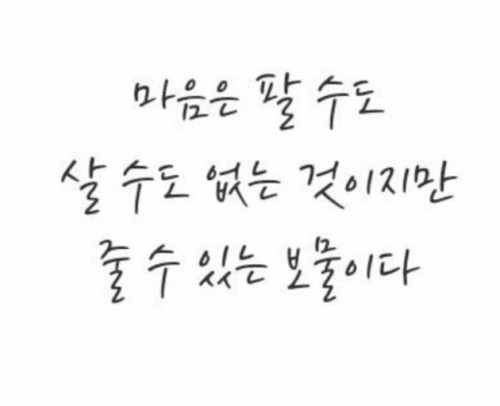 마음은 팔 수도
살 수도 없는 것이지만
줄 수 있는 보물이다